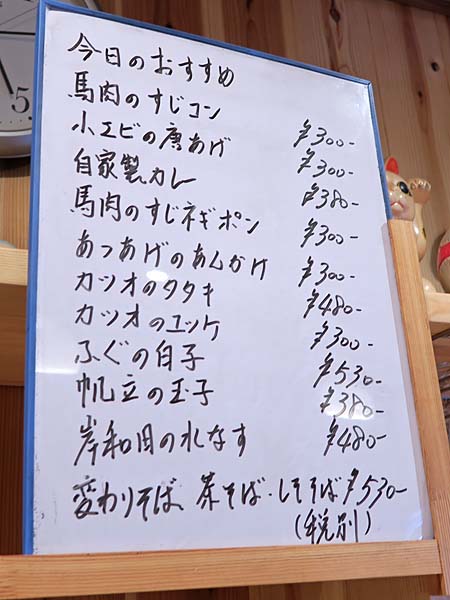 今日のおすすめ
馬肉のすじコン ¥300-
小エビの唐あげ ¥300-
自家製カレ ¥380-
馬肉のすじネギポン ¥300-
あつあげのあんかけ ¥300-
カツオのタタキ ¥480-
カツオのユッケ ¥300-
ふぐの白子 ¥530-
帆立の玉子 ¥380-
岸和田の水なす ¥480-
変わりそば、茶そば・しそそば ¥530-
(税別)
5